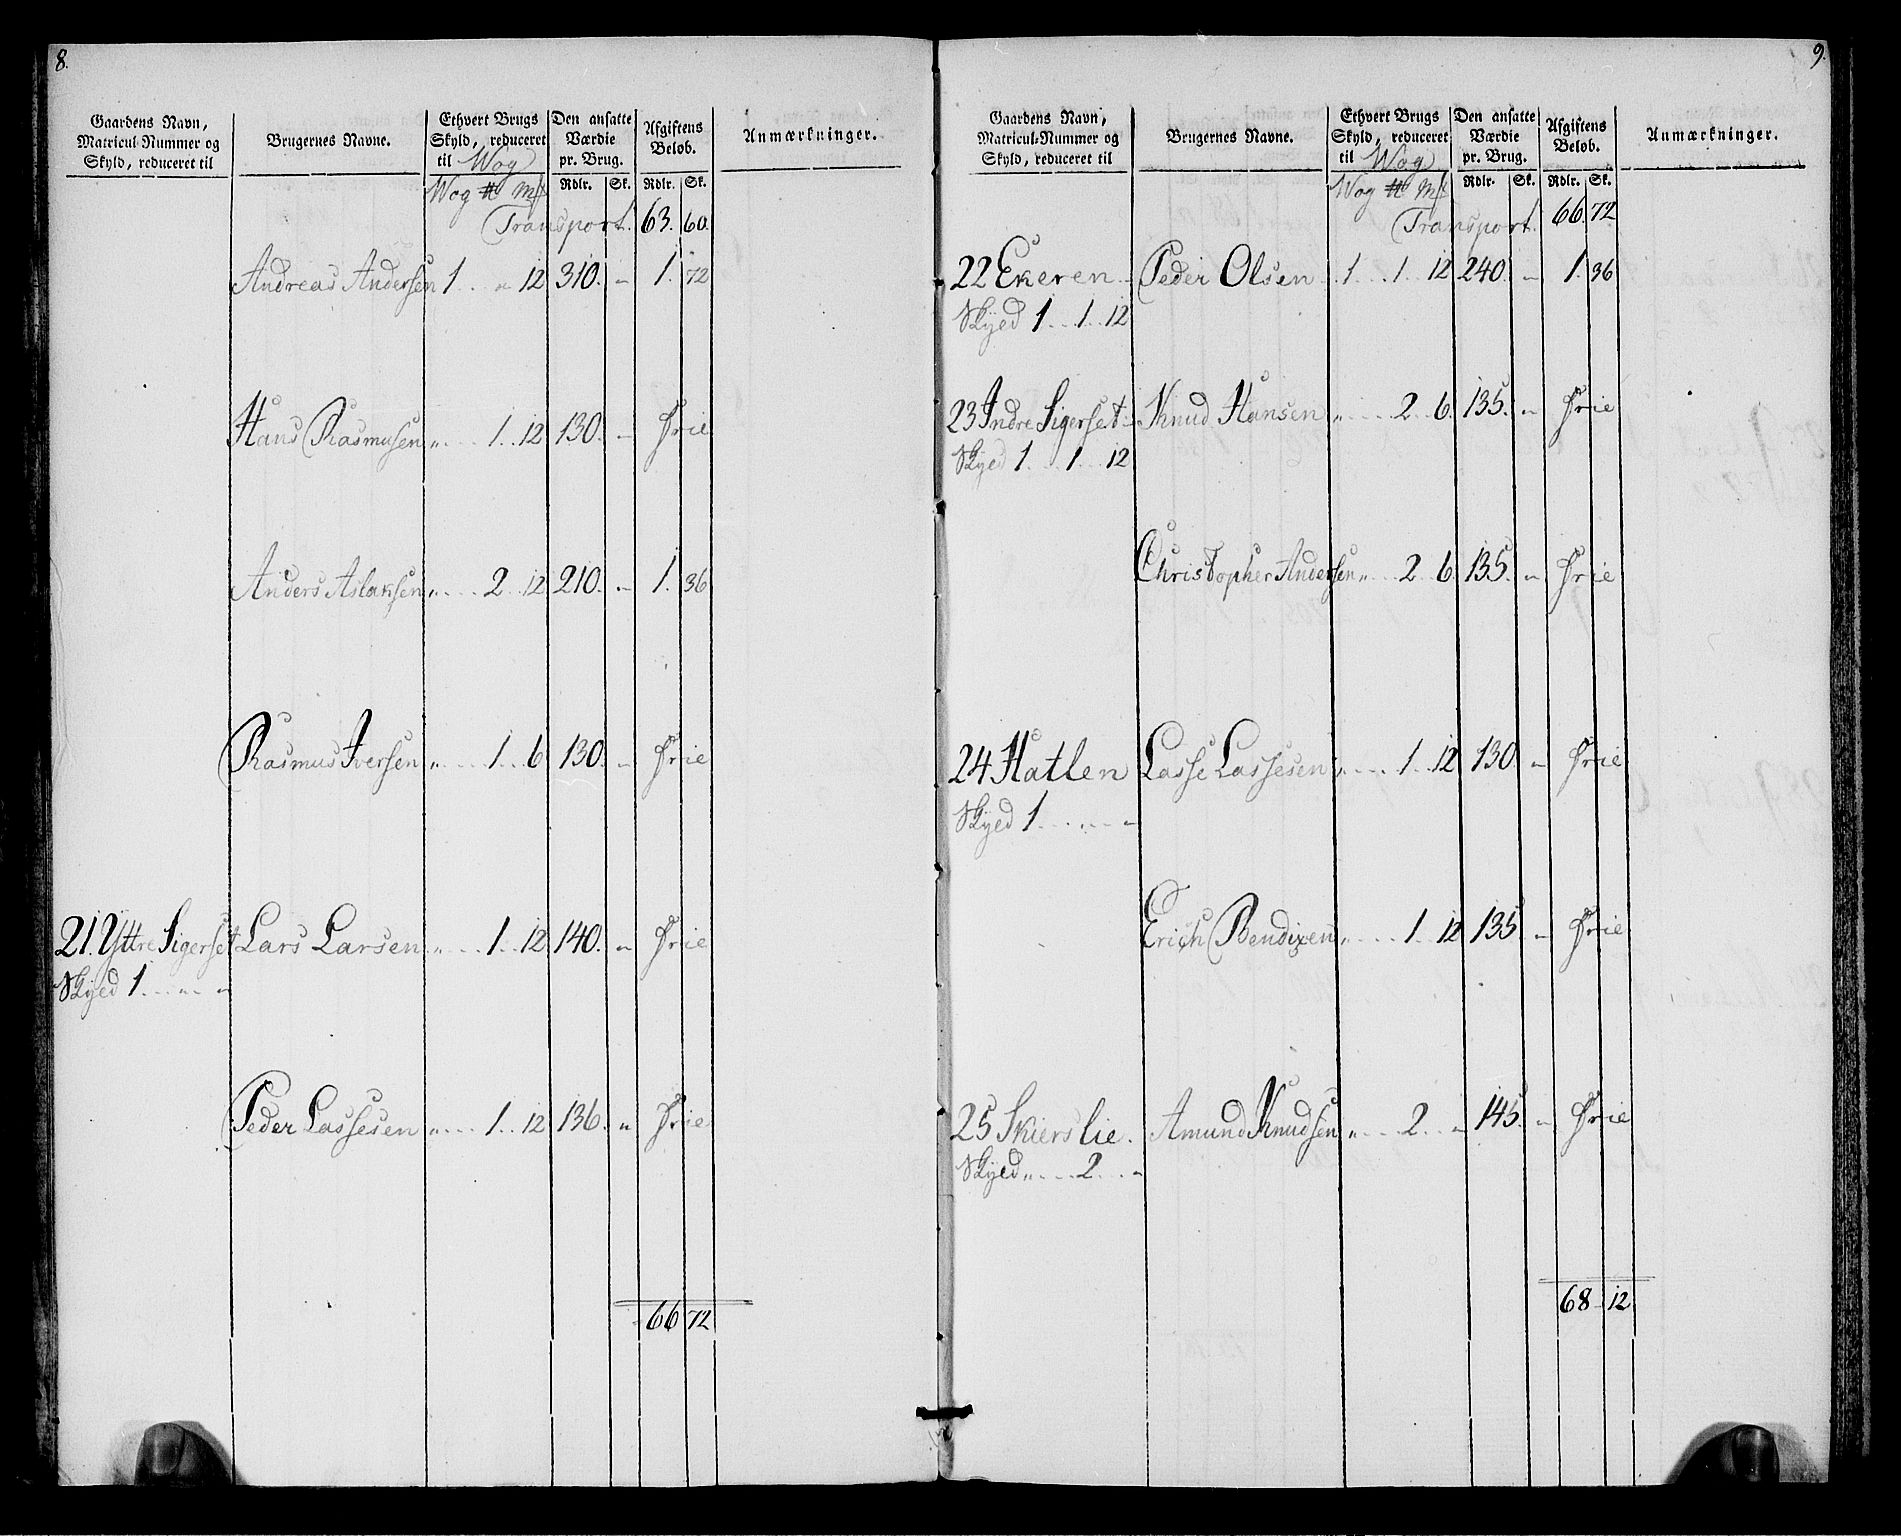 8.
Gaardens Navn, Matricul-Nummer og Skyld, reduceret til
Brugernes Navne.
Ethvert Brugs Skyld, reduceret til Wog
Den ansatte Værdie pr. Brug.
Afgiftens Beløb.
Anmærkninger.
Wog ℔ Mk Rdlr. Sk. Rdlr. Sk.
Transport. 63. 60.
Andreas Andersen 1 . . „ 12 310. „ 1. 72
Hans Rasmusen „ . . . . 1 . . 12 130. „ Frie
Anders Aslaksen „ . . . . 2 . . 12 210. „ 1. 36
Rasmus Iversen „ . . . . 1 . . 6 130. „ Frie
21. Yttre Sigerset Lars Larsen „ . . . . 1 . . 12 140. „ Frie
Skyld 1 . . „ . . „
Peder Lassesen „ . . . . 1 . . 12 136. „ Frie
66 72
9.
Gaardens Navn, Matricul-Nummer og Skyld, reduceret til
Brugernes Navne.
Ethvert Brugs Skyld, reduceret til Wog
Den ansatte Værdie pr. Brug.
Afgiftens Beløb.
Anmærkninger.
Wog ℔ Mk Rdlr. Sk. Rdlr. Sk.
Transport. 66. 72
22 Ekeren Peder Olsen . 1 . . . 1 . . 12 240. „ 1. 36
Skyld 1 . . 1 . . 12
23 Indre Sigerset Knud Hansen „ . . . . 2 . . 6. 135. „ Frie
Skyld 1 . . . 1 . . . 12
Christopher Andersen „ . . . 2 . . 6. 135. „ Frie
24 Hatlen Lasse Lassesen „ . . . . 1 . . 12 130. „ Frie
Skyld 1 . . . . . . „
Erich Bendixen „ . . . . 1 . . 12 135 „ Frie
25 Skierslie. Amund Knudsen „ . . . . 2 . . . „ 145. „ Frie
Skyld „ . . . . 2 . . . „
68 12